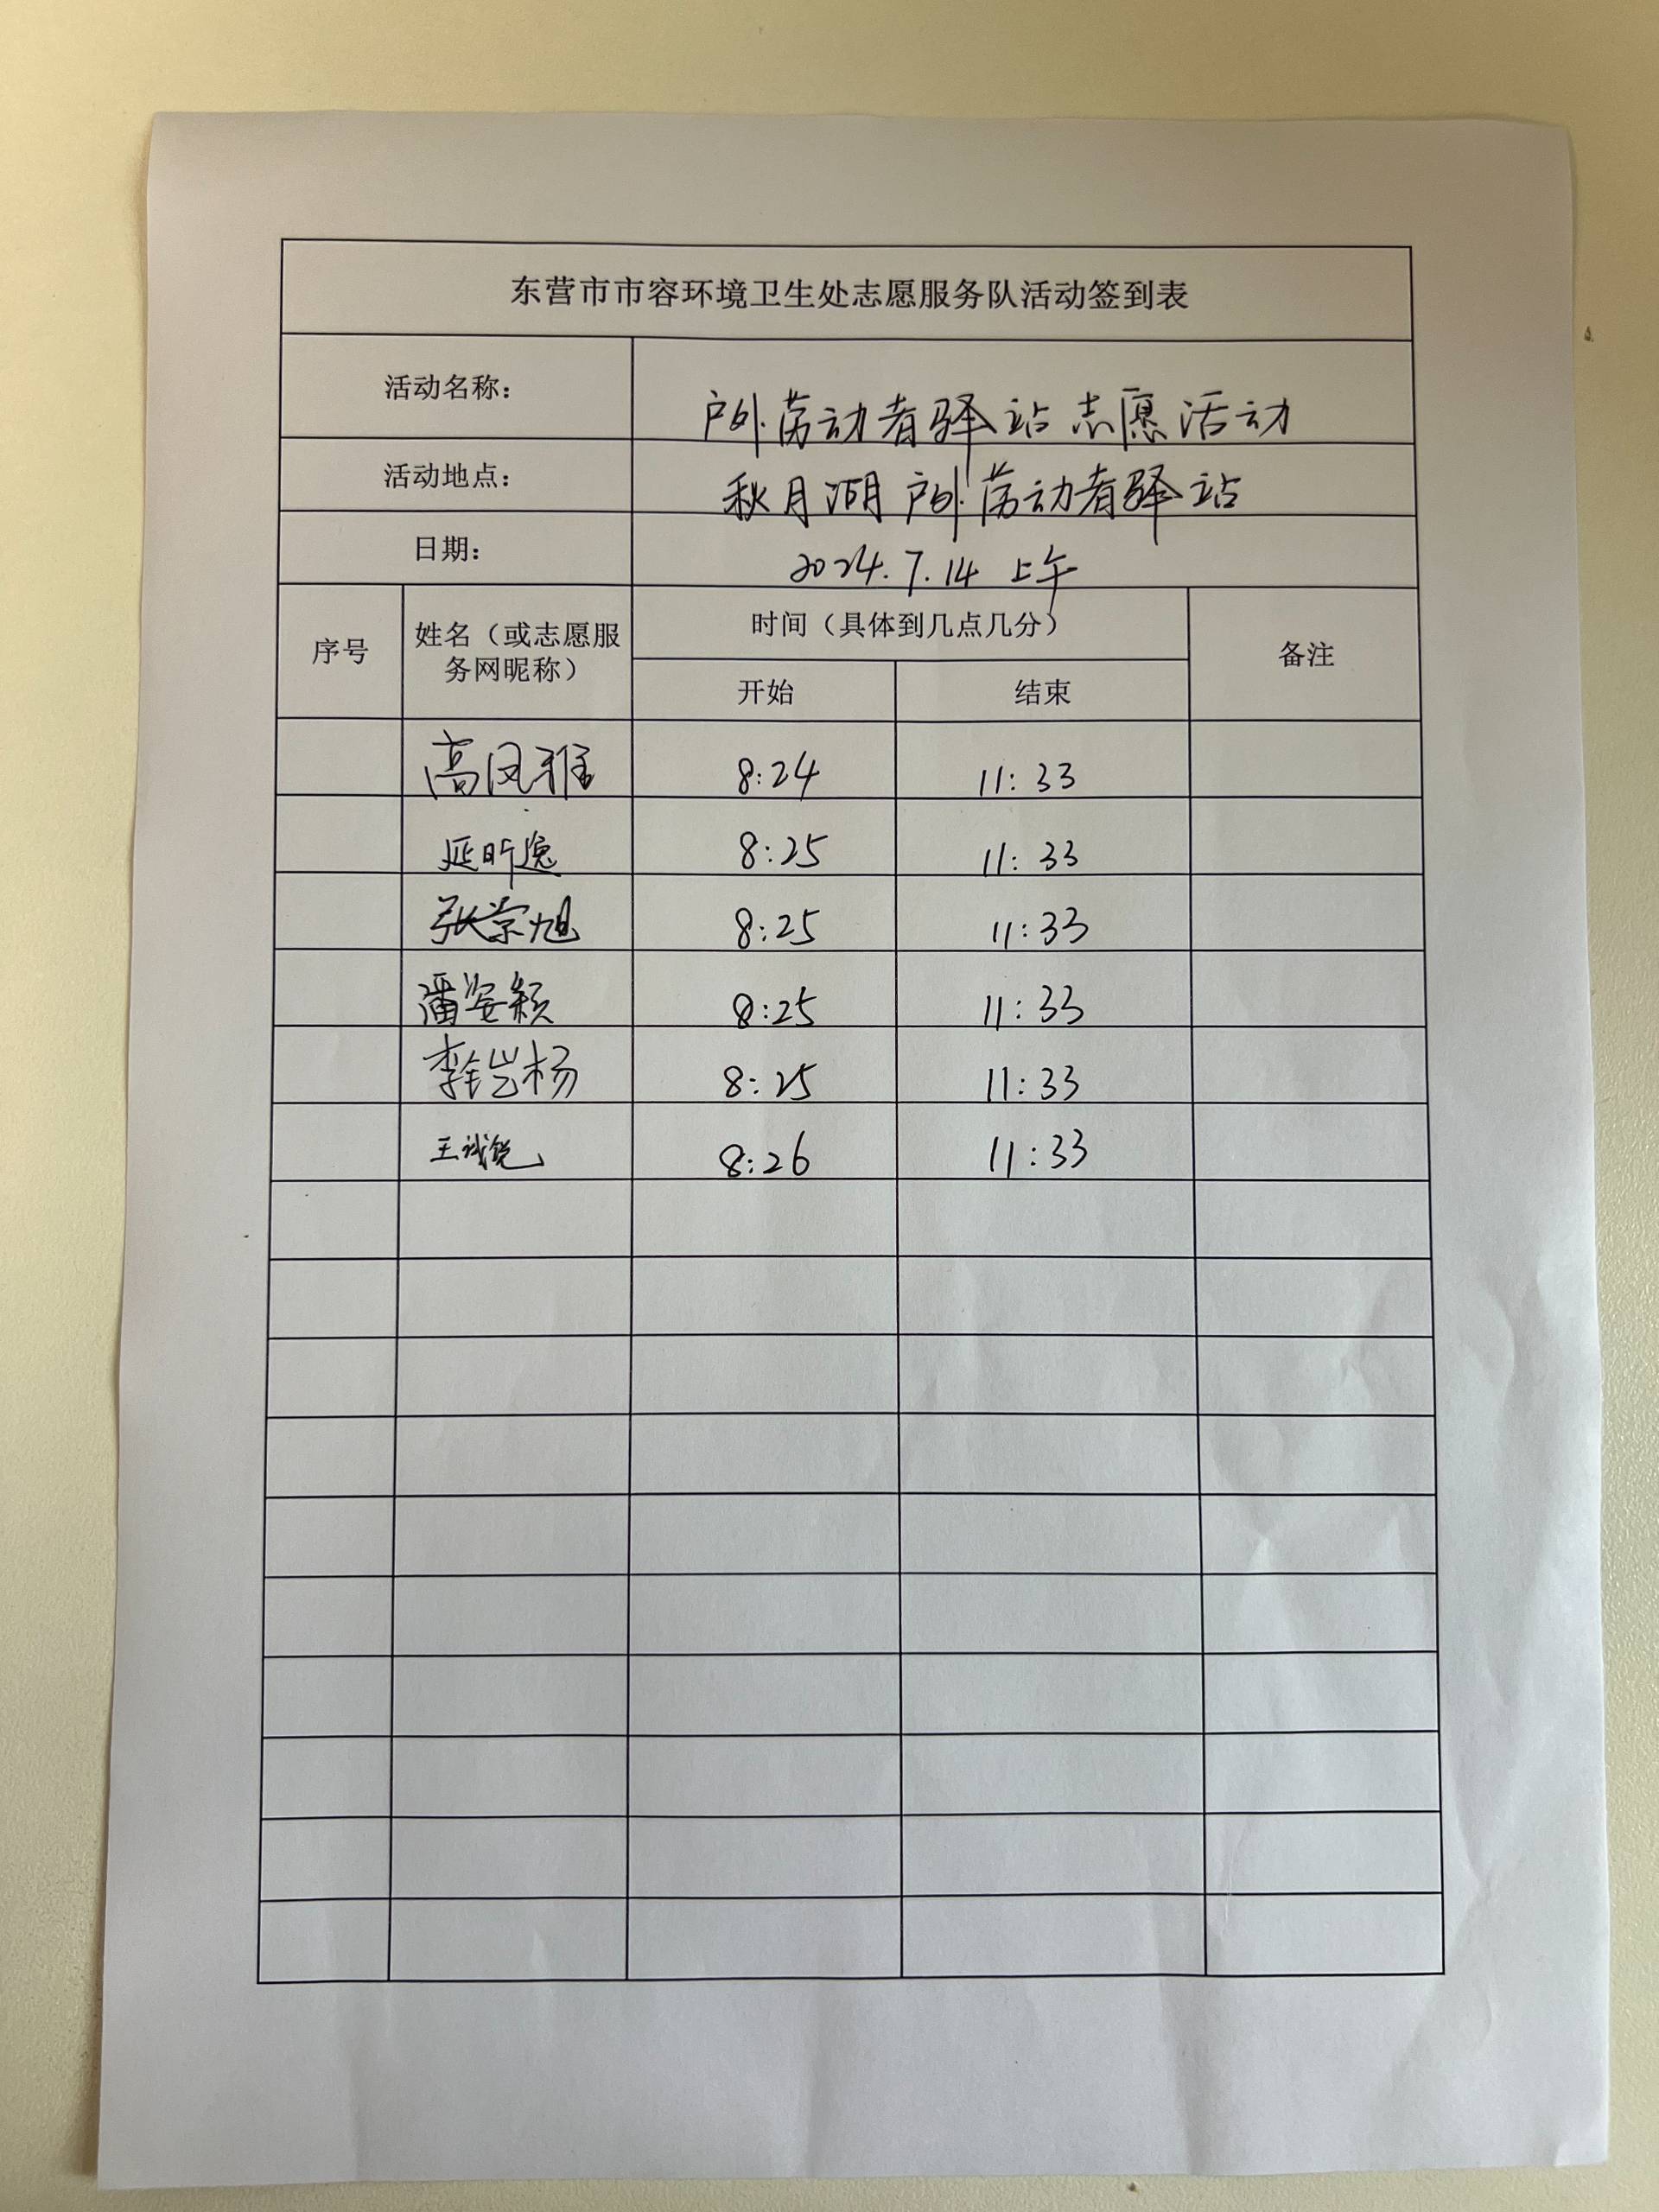 东营市市容环境卫生处志愿服务队活动签到表
活动名称： 户外劳动者驿站志愿活动
活动地点： 秋月湖户外劳动者驿站
日期： 2024.7.14 上午
序号 姓名（或志愿服务网昵称） 时间（具体到几点几分） 备注
开始 结束
高凤雅 8:24 11:33
延昕逸 8:25 11:33
张崇旭 8:25 11:33
潘姿颖 8:25 11:33
李铠杨 8:25 11:33
王诚锐 8:26 11:33